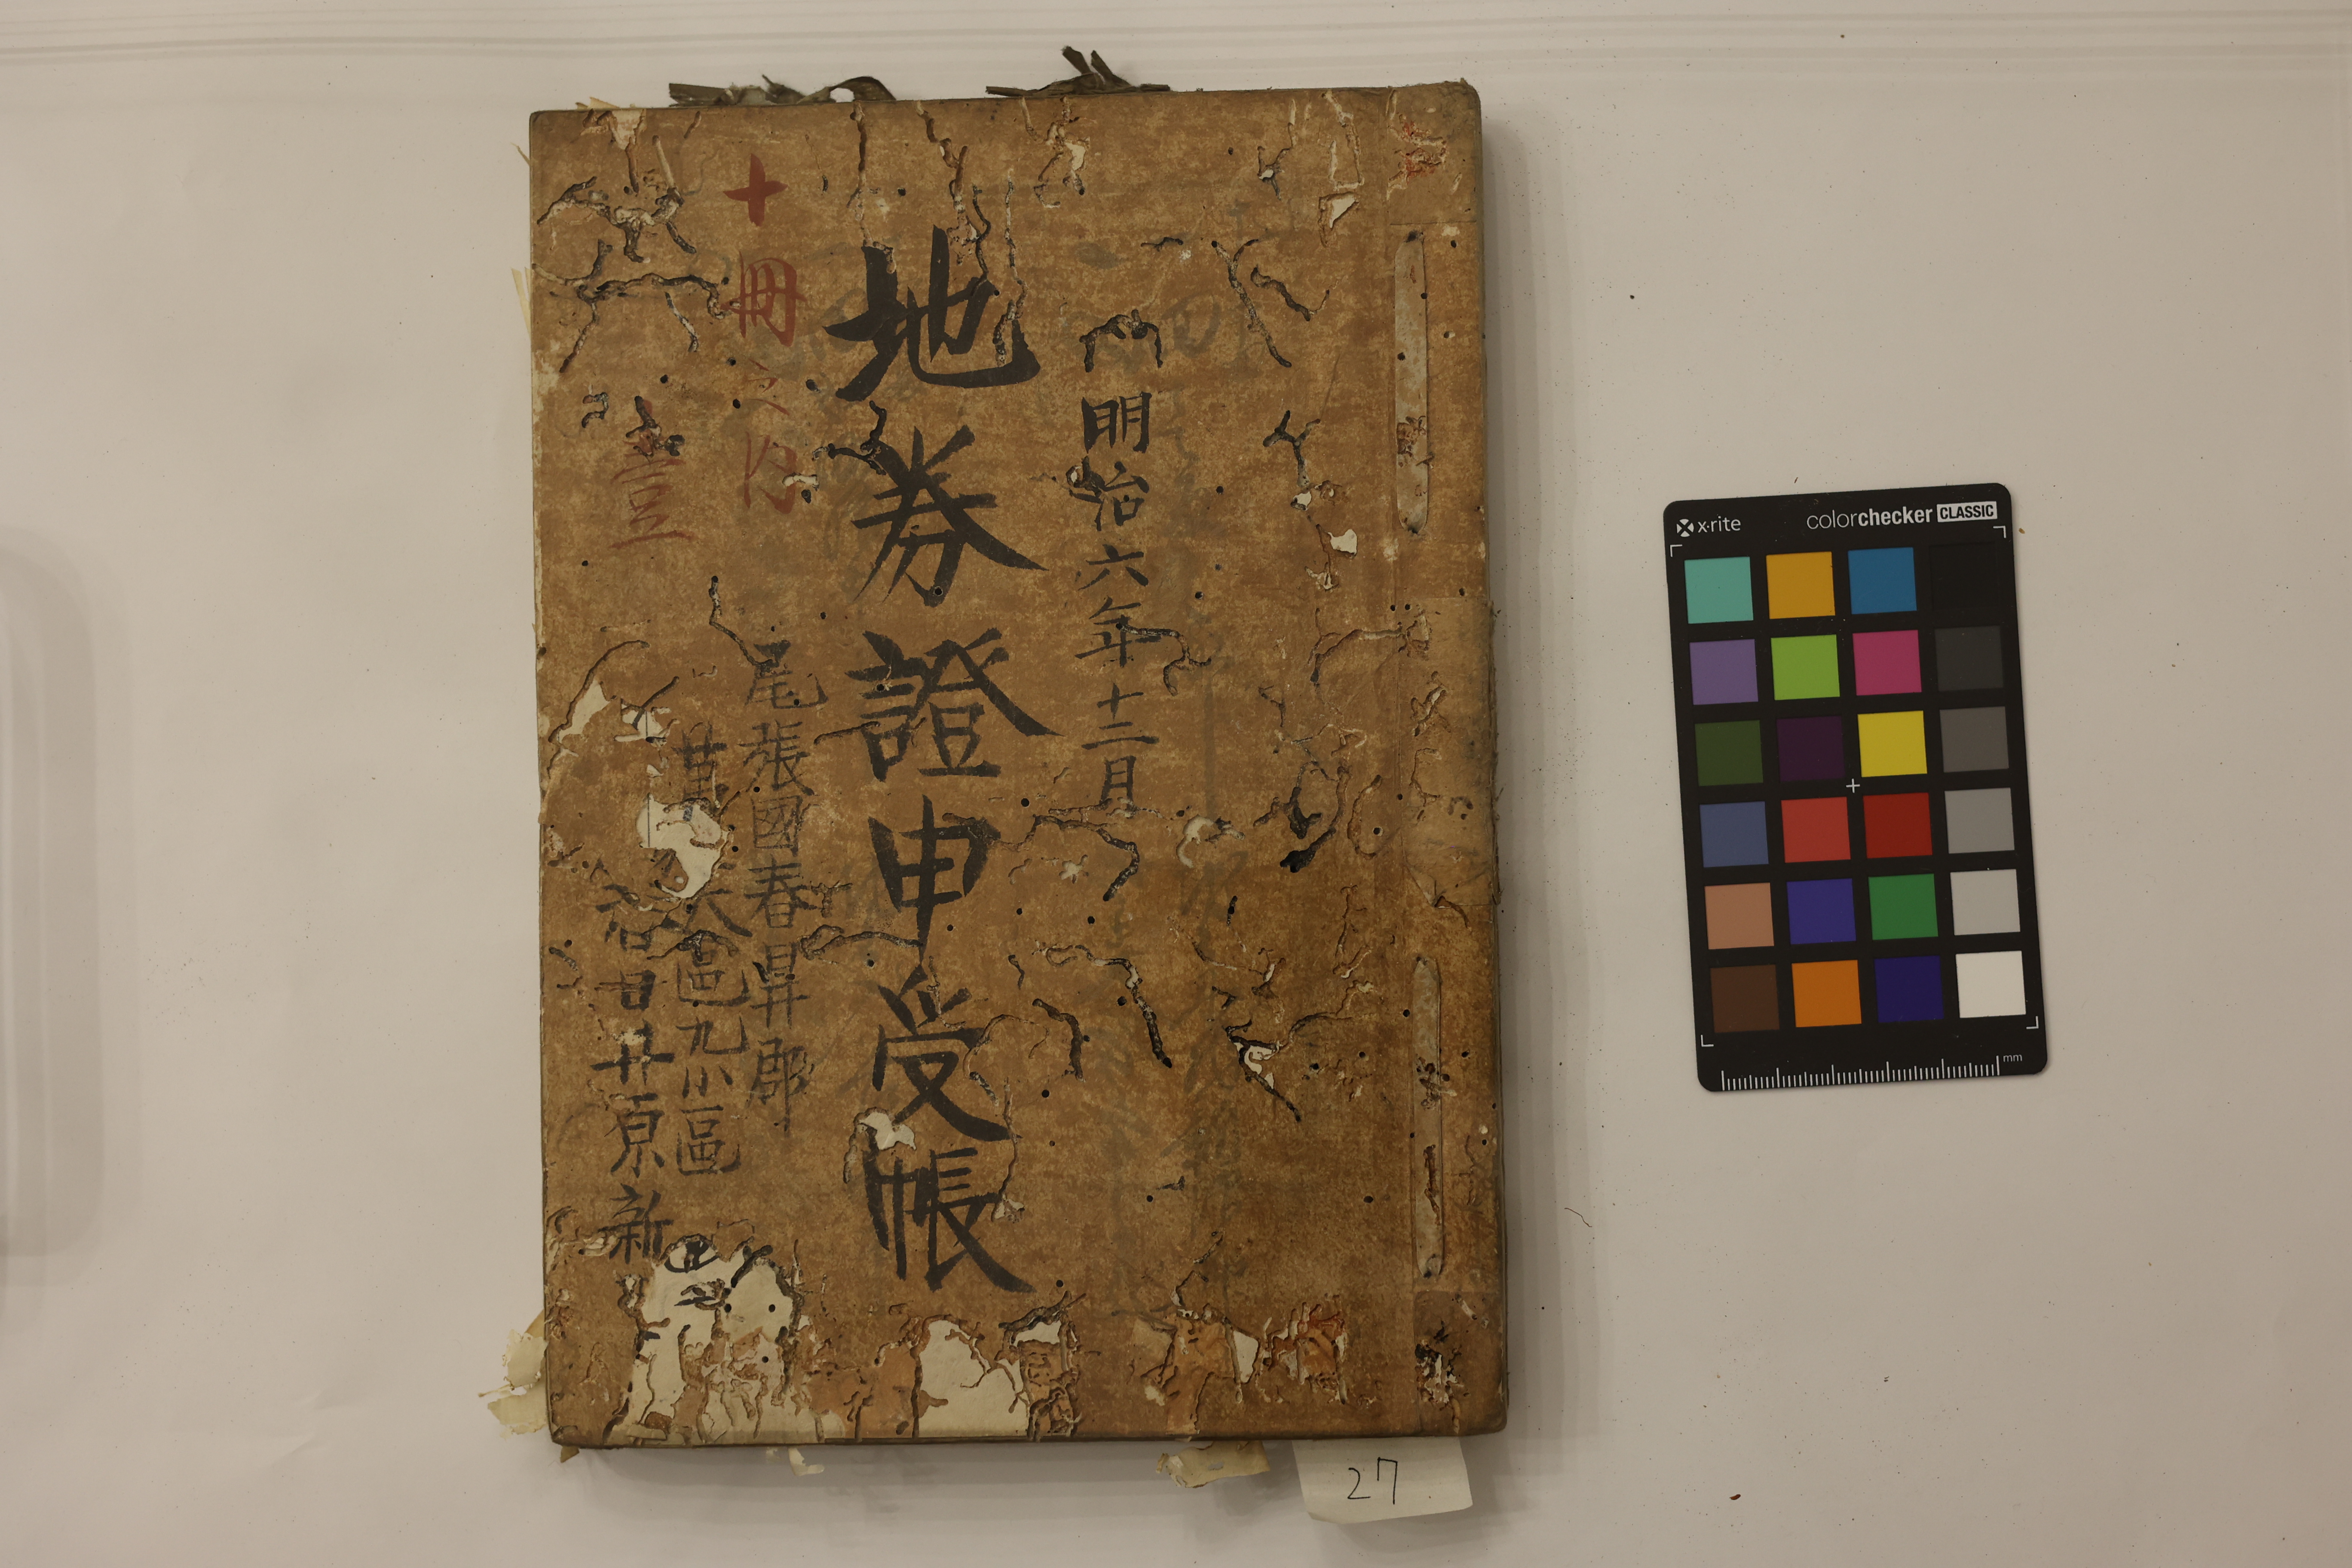 明治六年十二月
地券證申受帳
十冊之内
壹
尾張國春日井郡
第 大區九小區
春日井原新
27
x·rite
colorchecker CLASSIC
mm